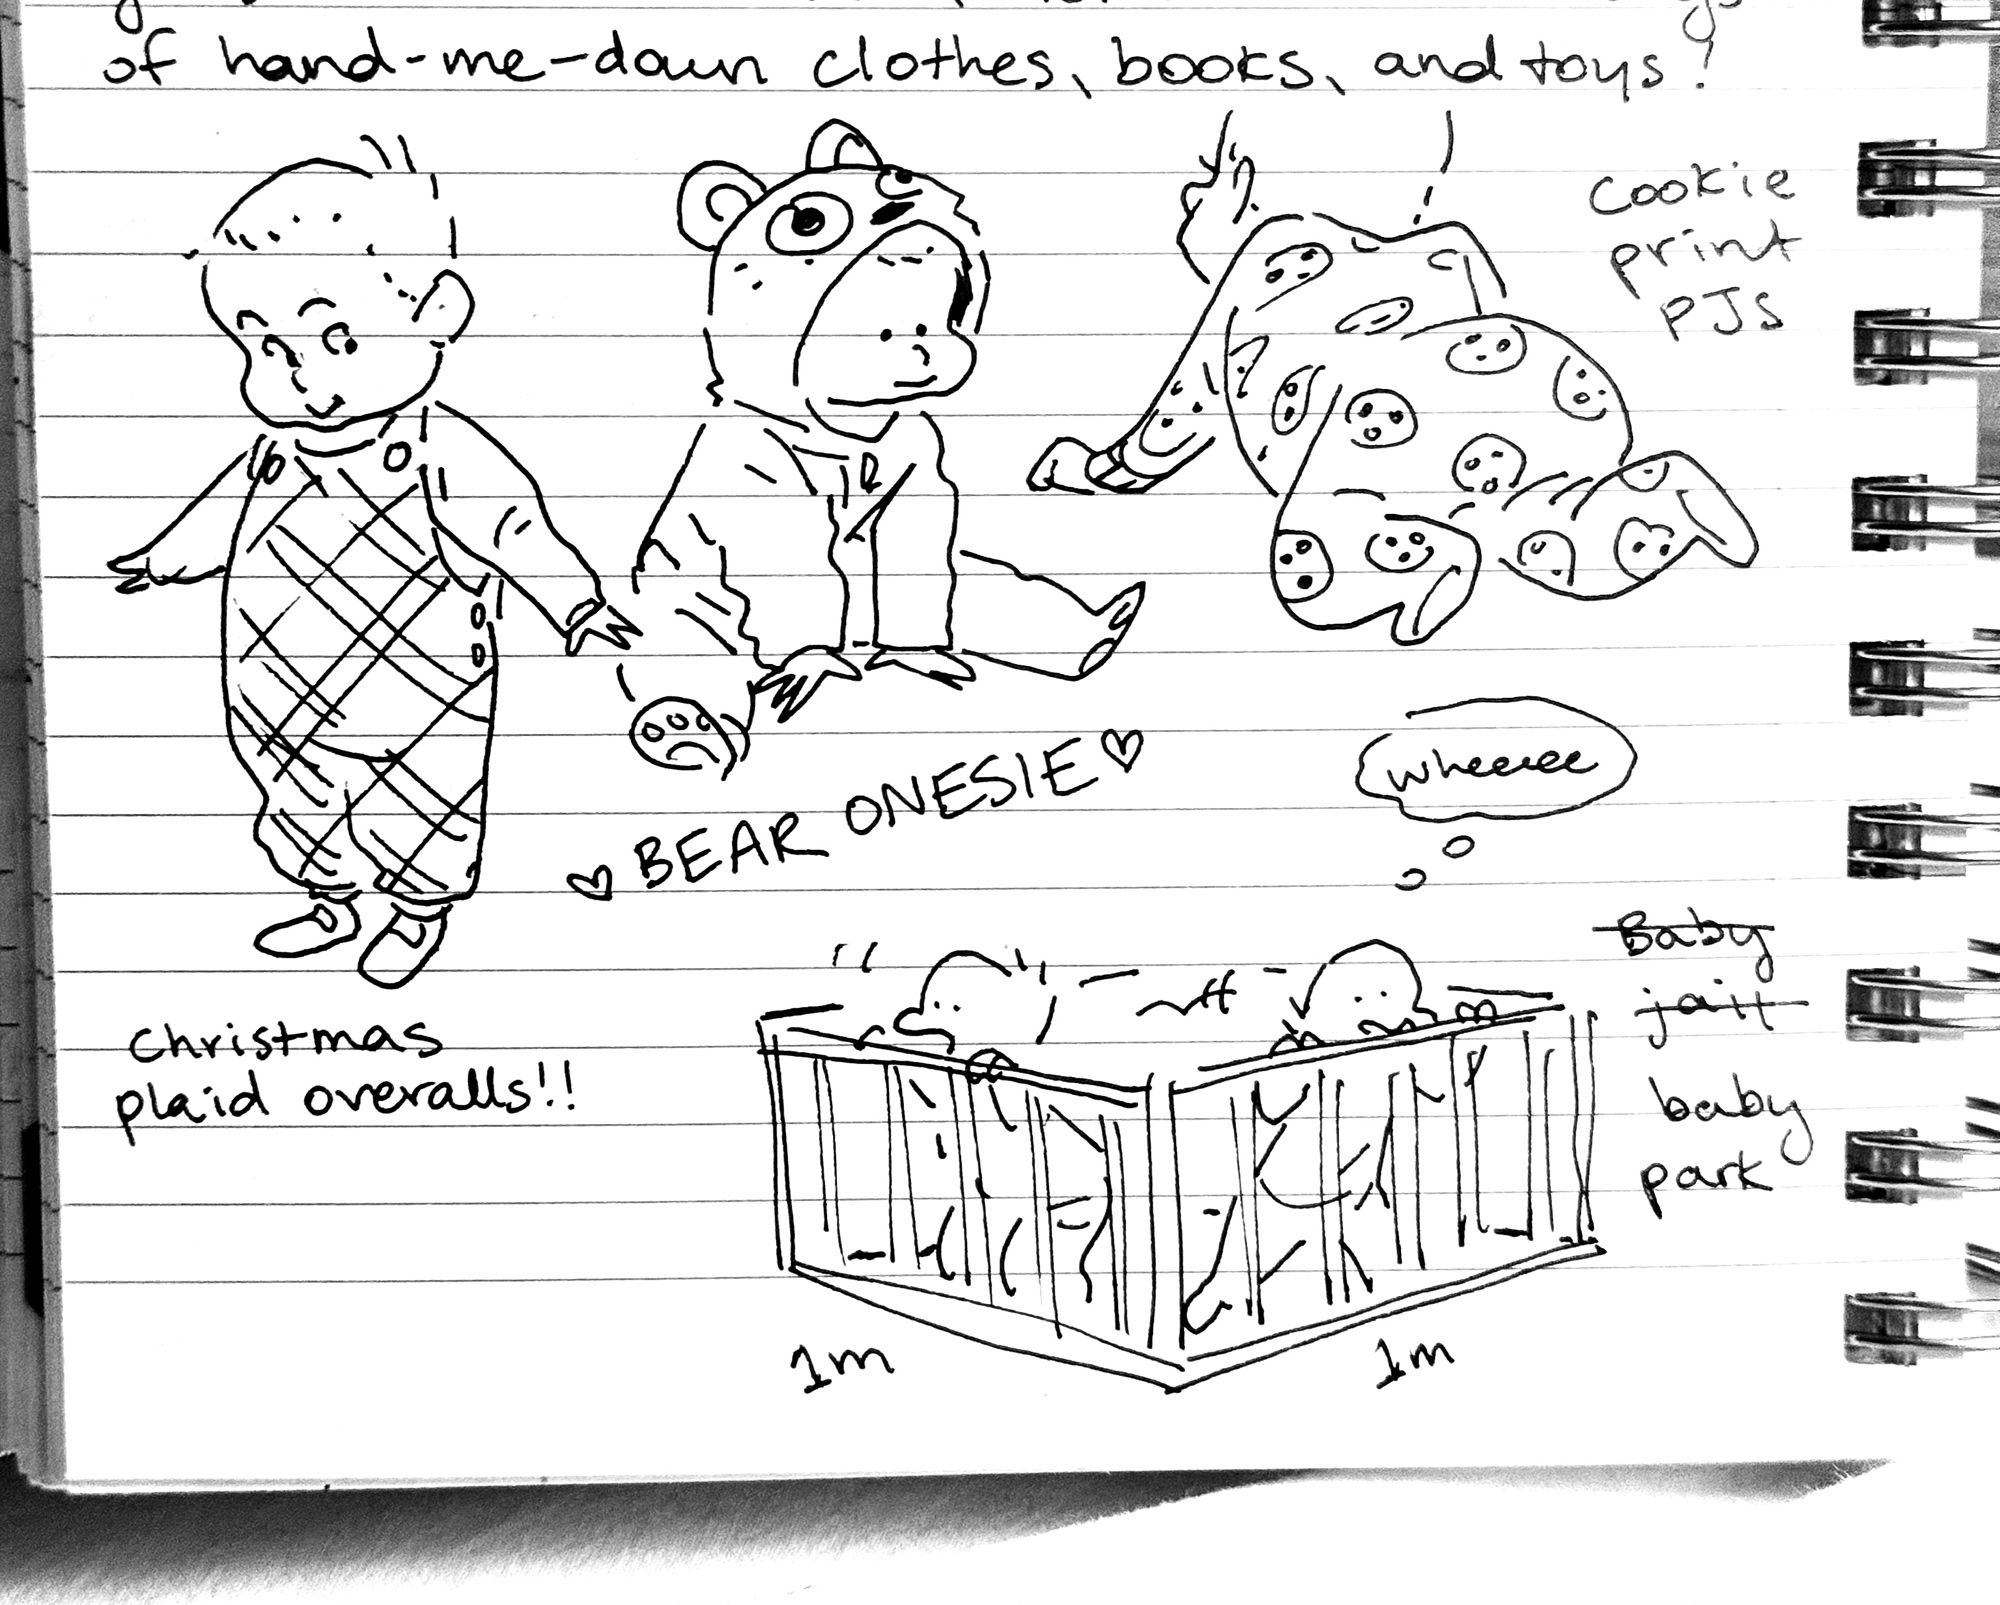 of hand-me-down clothes, books, and toys!
cookie
print
PJs
BEAR ONESIE
wheeeee
Baby
jail
baby
park
Christmas
plaid overalls!!
1m
1m